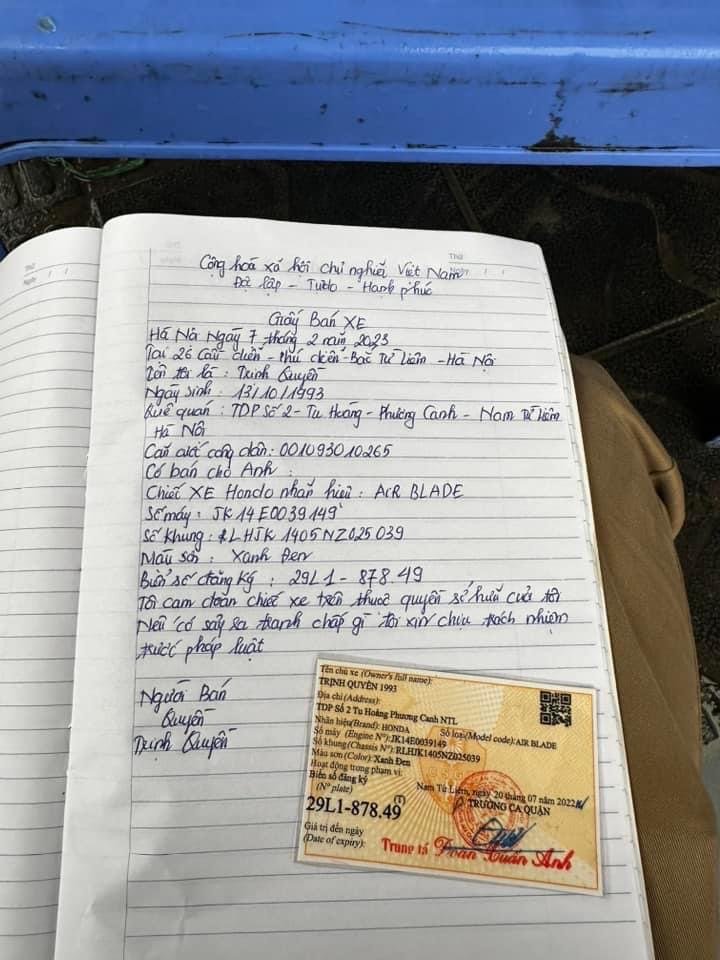 Thứ
Ngày / /
Thứ
Ngày / /
Cộng hoà xá hội chủ nghĩa Việt Nam
Độc lập - Tựdo - Hạnh phúc
Giấy Bán XE
Hà Nội Ngày 7 tháng 2 năm 2023
Tại 26 Cầu diễn - phú diễn - Bắc Từ Liêm - Hà Nội
Tên tôi là : Trịnh Quyền
Ngày sinh : 13/10/1993
Quê quán : TDP Số 2 - Tu Hoàng - Phương Canh - Nam Từ Liêm
Hà Nội
Căn cước công dân : 001093010265
Có bán cho Anh :
Chiếc XE Honda nhãn hiệu : AiR BLADE
Số máy : JK14E0039149
Số khung : RLHJK1405NZ025039
Màu sơn : Xanh Đen
Biển số đăng ký : 29L1 - 878.49
Tôi cam đoan chiếc xe trên thuộc quyền sở hữu của tôi
Nếu có sảy ra tranh chấp gì tôi xin chịu trách nhiệm
trước pháp luật
Người Bán
Quyền
Trịnh Quyền
Tên chủ xe (Owner's full name):
TRỊNH QUYỀN 1993
Địa chỉ (Address):
TDP Số 2 Tu Hoàng Phương Canh NTL
Nhãn hiệu(Brand): HONDA Số loại(Model code): AIR BLADE
Số máy (Engine N°): JK14E0039149
Số khung(Chassis N°): RLHJK1405NZ025039
Màu sơn (Color): Xanh Đen
Hoạt động trong phạm vi:
Biển số đăng ký
(N° plate)
Nam Từ Liêm, ngày 20 tháng 07 năm 2022
29L1-878.49
TRƯỞNG CA QUẬN
Giá trị đến ngày
(Date of expiry):
Trung tá Doãn Xuân Anh